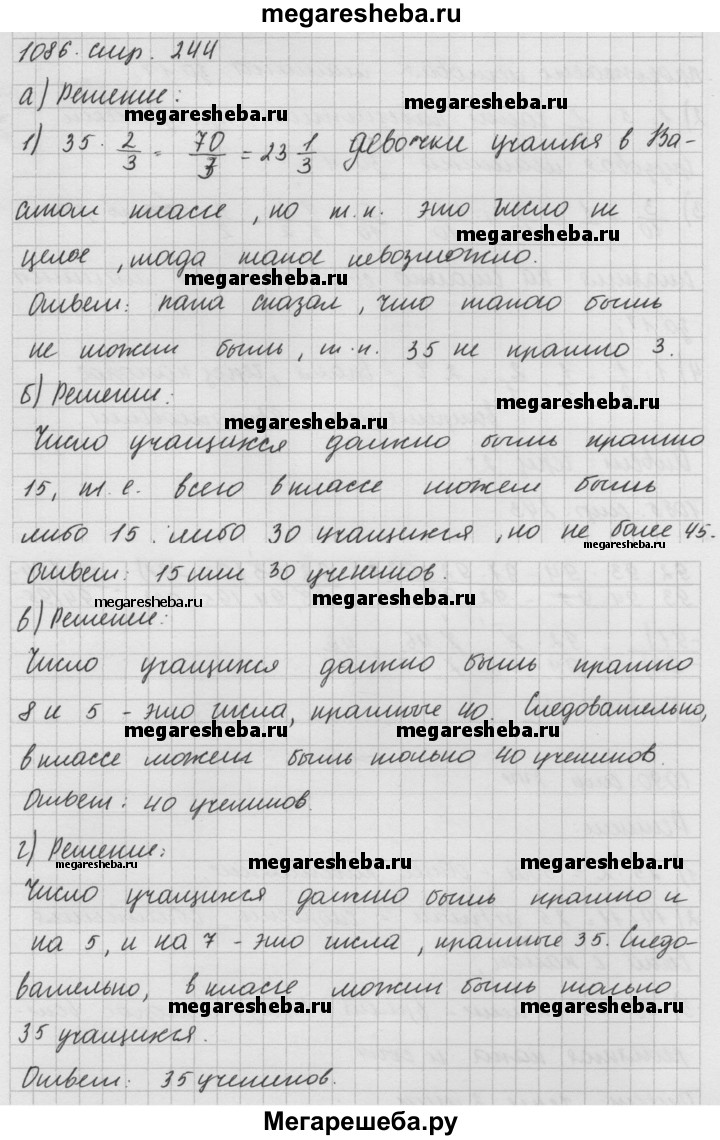 megaresheba.ru
1086. стр. 244
а) Решение:
megaresheba.ru
1) 35 · 2/3 = 70/3 = 23 1/3 девочки учатся в Ва-
сином классе, но т.к. это число не
megaresheba.ru
целое, тогда такое невозможно.
megaresheba.ru
Ответ: папа сказал, что такого быть
не может быть, т.к. 35 не кратно 3.
б) Решение:
megaresheba.ru
megaresheba.ru
Число учащихся должно быть кратно
15, т.е. всего в классе может быть
либо 15 либо 30 учащихся, но не более 45.
megaresheba.ru
Ответ: 15 или 30 учеников.
megaresheba.ru
megaresheba.ru
в) Решение:
Число учащихся должно быть кратно
8 и 5 - это числа, кратные 40. Следовательно,
megaresheba.ru
megaresheba.ru
в классе может быть только 40 учеников.
Ответ: 40 учеников.
г) Решение:
megaresheba.ru
megaresheba.ru
megaresheba.ru
Число учащихся должно быть кратно и
на 5, и на 7 - это числа, кратные 35. Следо-
вательно, в классе может быть только
megaresheba.ru
megaresheba.ru
35 учащихся.
Ответ: 35 учеников.
megaresheba.ru
Мегарешеба.ру